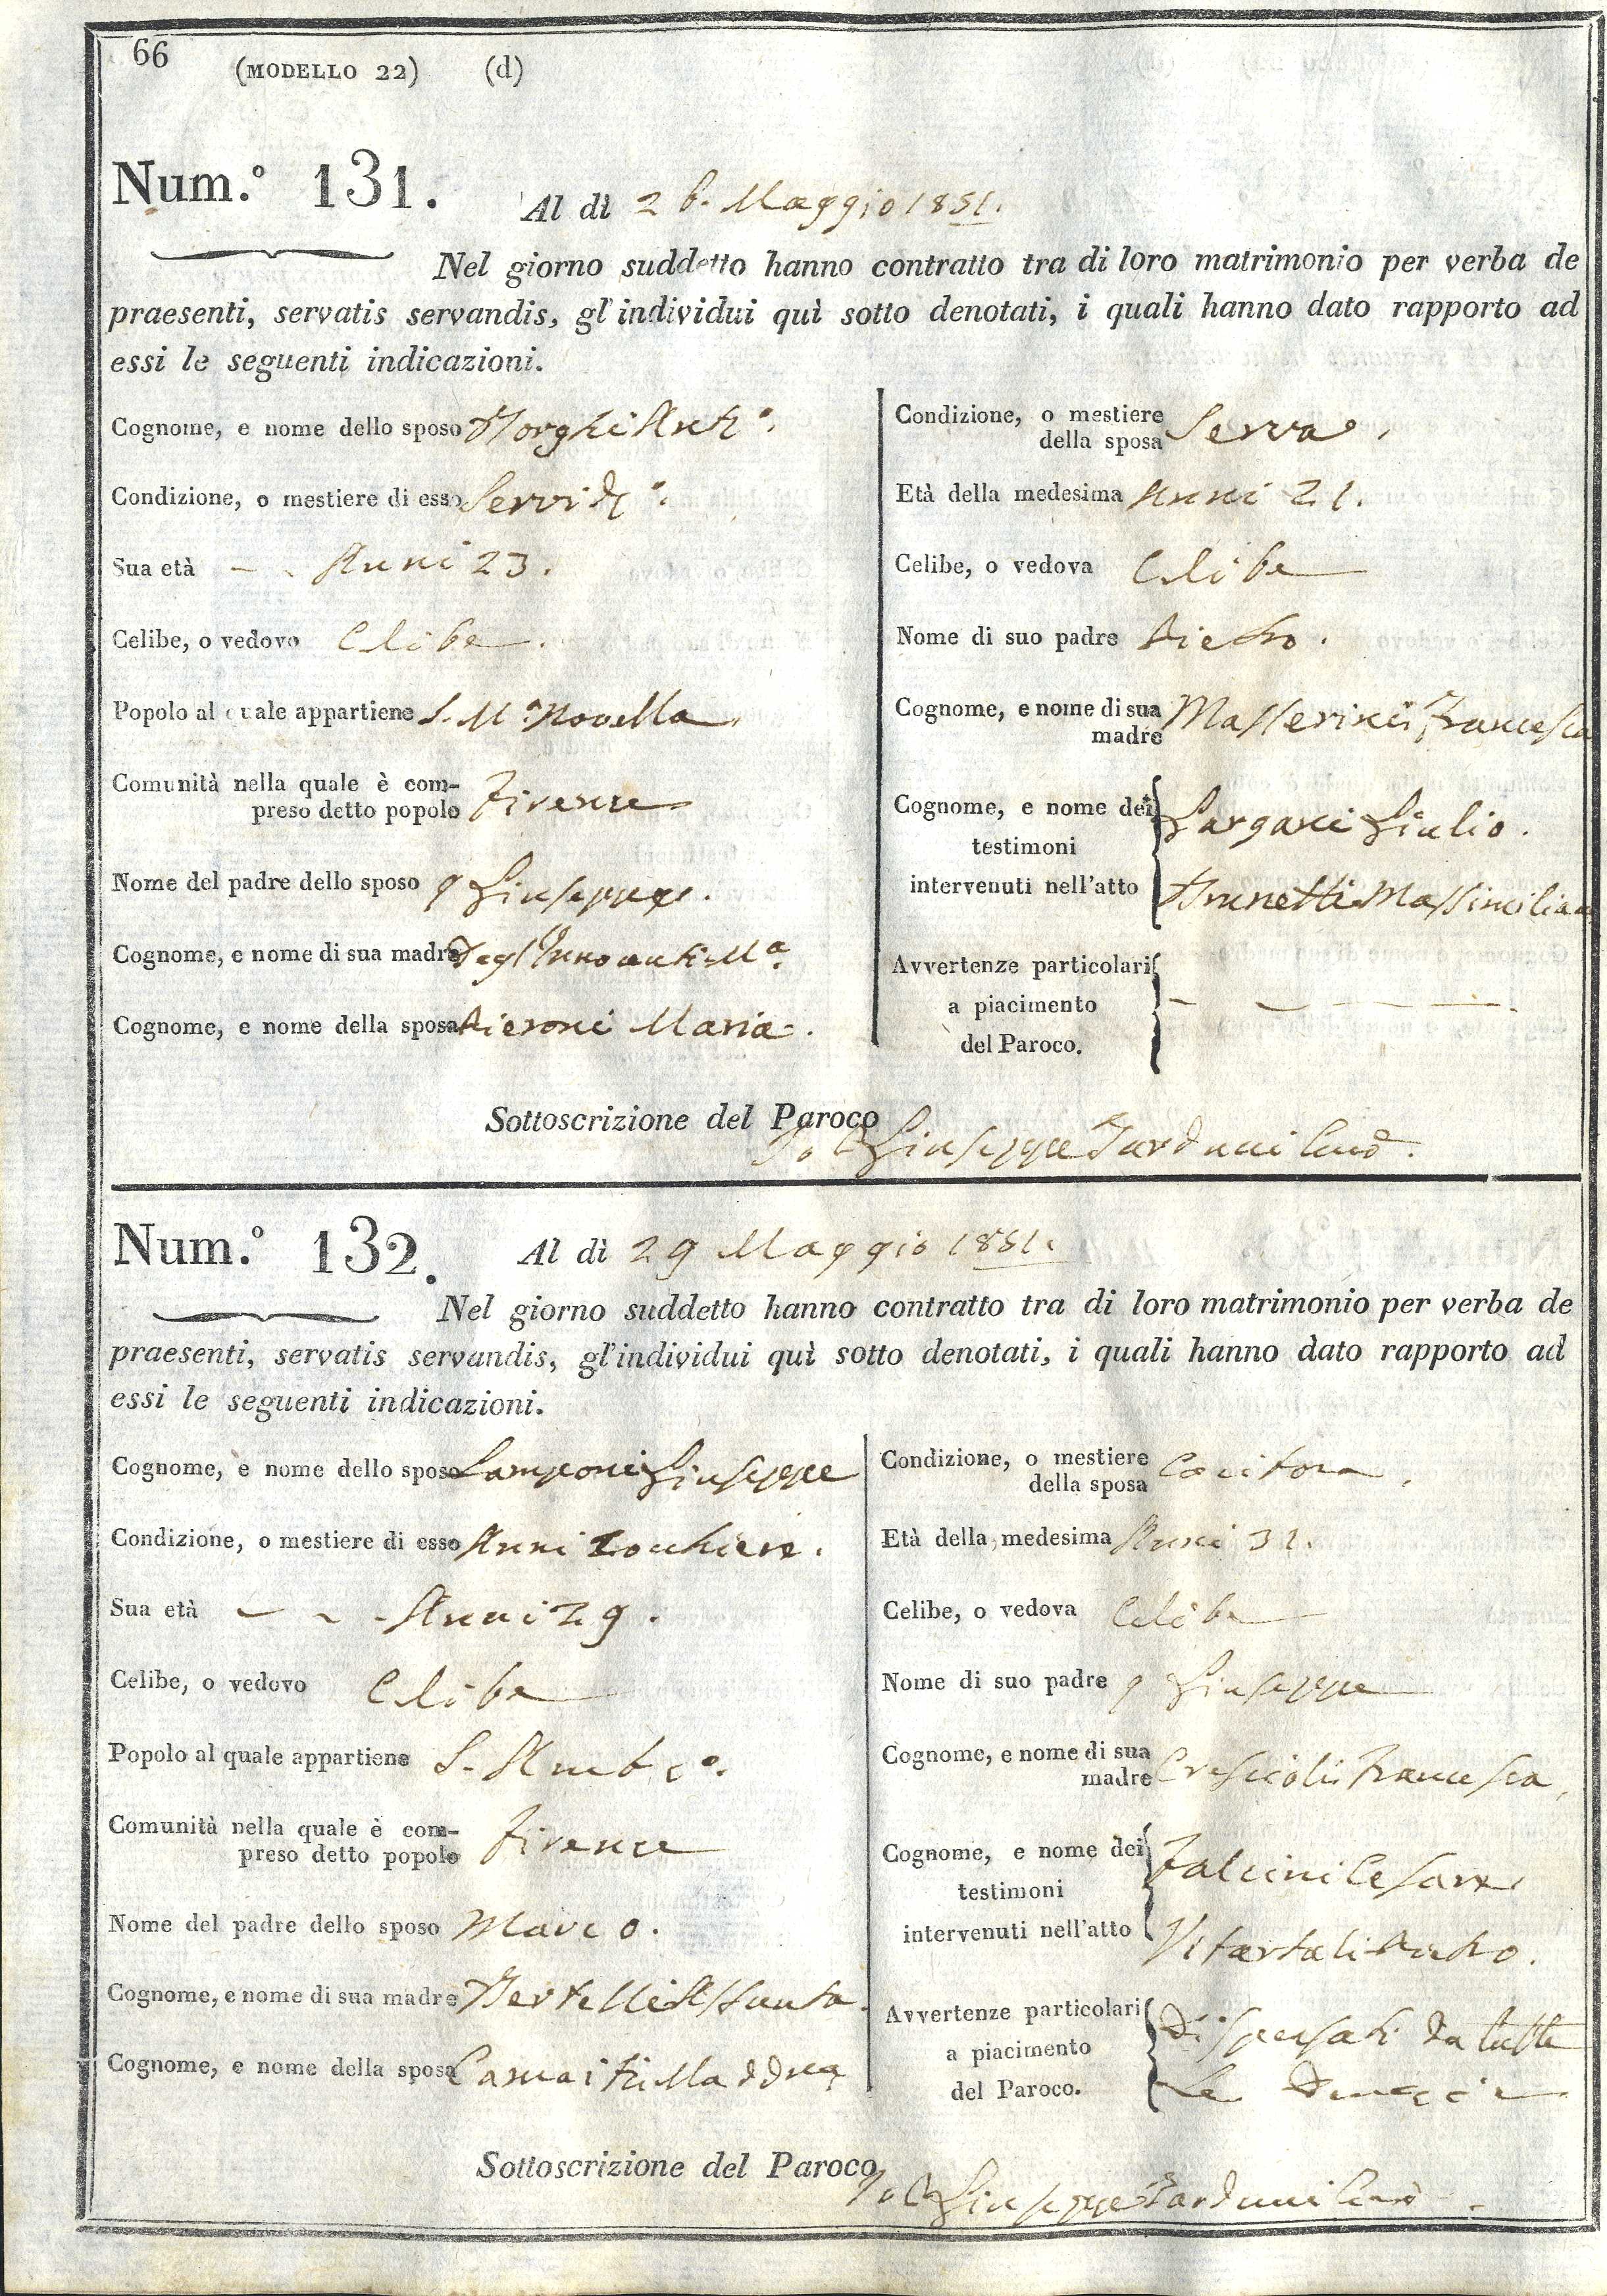 66 (MODELLO 22) (d)
Num.º 131. Al dì 26. Maggio 1851.
Nel giorno suddetto hanno contratto tra di loro matrimonio per verba de
praesenti, servatis servandis, gl'individui quì sotto denotati, i quali hanno dato rapporto ad
essi le seguenti indicazioni.
Cognome, e nome dello sposo Borghi Ant.º.
Condizione, o mestiere di esso Servid.º.
Sua età - - Anni 23.
Celibe, o vedovo Celibe.
Popolo al quale appartiene S. M.ª Novella
Comunità nella quale è com-
preso detto popolo Firenze
Nome del padre dello sposo q Giuseppe.
Cognome, e nome di sua madre Degl'Innocenti M.ª
Cognome, e nome della sposa Pieroni Maria.
Condizione, o mestiere
della sposa Serva.
Età della medesima Anni 21.
Celibe, o vedova Celibe
Nome di suo padre Pietro.
Cognome, e nome di sua
madre Masserini Francesca
Cognome, e nome dei
testimoni
intervenuti nell'atto
Gargani Giulio.
Brunetti Massimilia
Avvertenze particolari
a piacimento
del Paroco.
Sottoscrizione del Paroco
Giuseppe Tarducci Cur.º.
Num.º 132. Al dì 29 Maggio 1851.
Nel giorno suddetto hanno contratto tra di loro matrimonio per verba de
praesenti, servatis servandis, gl'individui quì sotto denotati, i quali hanno dato rapporto ad
essi le seguenti indicazioni.
Cognome, e nome dello sposo Lamponi Giuseppe
Condizione, o mestiere di esso Anni
Sua età - - - Anni 29.
Celibe, o vedovo Celibe
Popolo al quale appartiene S. Amb.º.
Comunità nella quale è com-
preso detto popolo Firenze
Nome del padre dello sposo Marco.
Cognome, e nome di sua madre Bertelli Assunta.
Cognome, e nome della sposa
Condizione, o mestiere
della sposa Cucitora.
Età della medesima Anni 31.
Celibe, o vedova Celibe
Nome di suo padre q Giuseppe
Cognome, e nome di sua
madre Crescioli Francesca,
Cognome, e nome dei
testimoni
intervenuti nell'atto
Falcini Cesare
Pietro.
Avvertenze particolari
a piacimento
del Paroco.
Dispensati da tutte
Le Denuncie
Sottoscrizione del Paroco
Giuseppe Tarducci Cur.º